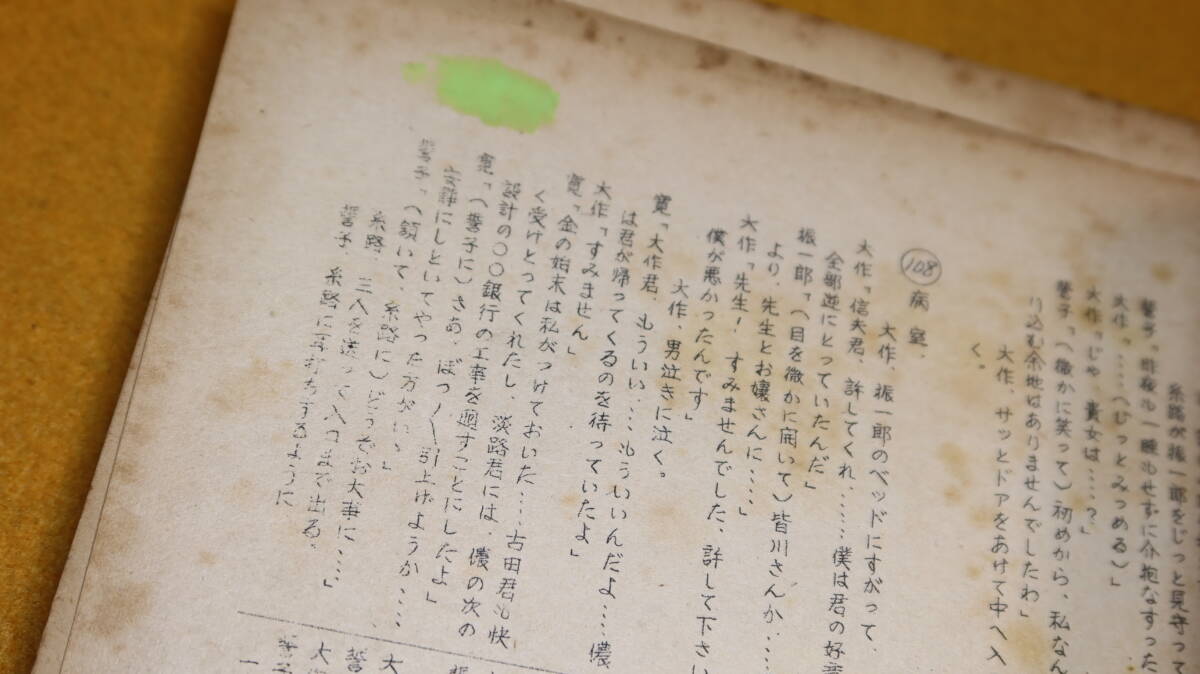 糸路が振一郎をじっと見守って
誓子「昨夜も一睡もせずに介抱なすった
大作「……(じっとみつめる)」
大作「じゃ、貴女は……?」
誓子「(微かに笑って)初めから、私なん
り込む余地はありませんでしたわ」
大作、サッとドアをあけて中へ入
く。
108 病室、
大作、振一郎のベッドにすがって、
大作「信夫君、許してくれ、……僕は君の好意
全部逆にとっていたんだ」
振一郎「(目を微かに開いて)皆川さんか、……
より、先生とお嬢さんに……」
大作「先生! すみませんでした、許して下さい
僕が悪かったんです」
大作、男泣きに泣く。
寛「大作君、もういい……もういいんだよ……儂
は君が帰ってくるのを待っていたよ」
大作「すみません」
寛「金の始末は私がつけておいた……古田君も快
く受けとってくれたし、淡路君には、儂の次の
設計の〇〇銀行の工事を廻すことにしたよ」
寛「(誓子に)さあ、ぼつ〱引上げようか、……
安静にしといてやった方がいい」
誓子「(頷いて、糸路に)どうぞお大事に……」
糸路、三人を送って入口まで出る。
誓子、糸路に耳打ちするように